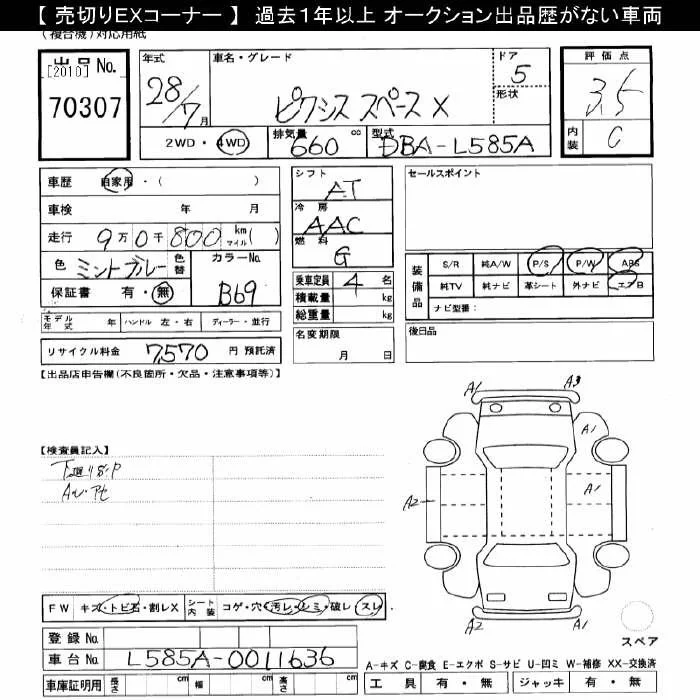 【 売切りEXコーナー 】 過去１年以上 オークション出品歴がない車両
(複合機)対応用紙
出品 No. [2010]
70307
年式 28/7月
車名・グレード ピクシス スペース X
ドア 5
形状
評価点 3.5
内装 C
2WD・4WD
排気量 660 cc
型式 DBA-L585A
車歴 自家用・( )
車検 年 月
走行 9万0千800 km マイル( )
色 ミントブルー 色替 カラーNo. B69
保証書 有・無
モデル年式 年 ハンドル 左・右 ディーラー・並行
リサイクル料金 7,570 円 預託済
シフト AT
冷房 AAC
燃料 G
乗車定員 4 名
積載量 kg
総重量 kg
名変期限 月 日
セールスポイント
装備品 S/R 純A/W P/S P/W ABS
純TV 純ナビ 革シート 外ナビ エアB
ナビ型番：
後日品
【出品店申告欄(不良箇所・欠品・注意事項等)】
【検査員記入】
FW キズ・トビ石・割レX シート内装 コゲ・穴・汚レ・シミ・破レ・スレ
登録 No.
車台 No. L585A-0011636
車庫証明用 長さ cm 幅 cm 高さ cm
A1 A3
A1
A2 A1
A2 A1
スペア
A-キズ C-腐食 E-エクボ S-サビ U-凹ミ W-補修 XX-交換済
工具 有・無 ジャッキ 有・無